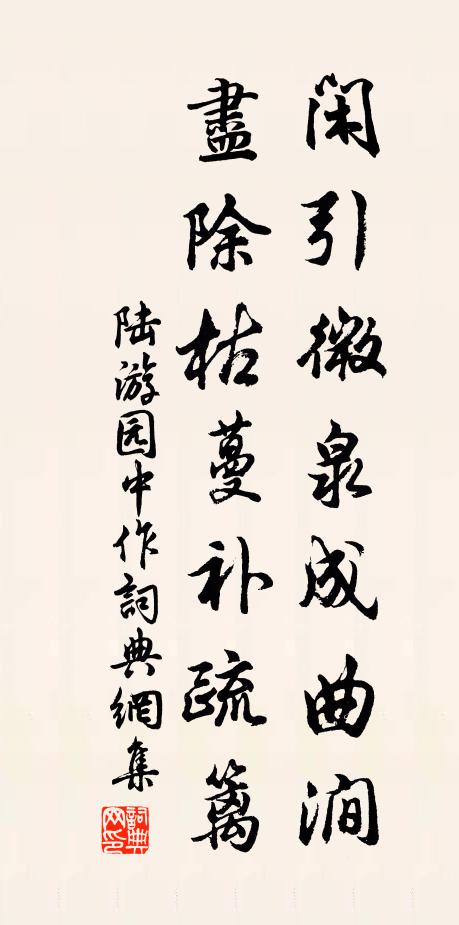 闲引微泉成曲涧
盡除枯蔓补疏篱
陆游园中作詞典網集
詞典网印